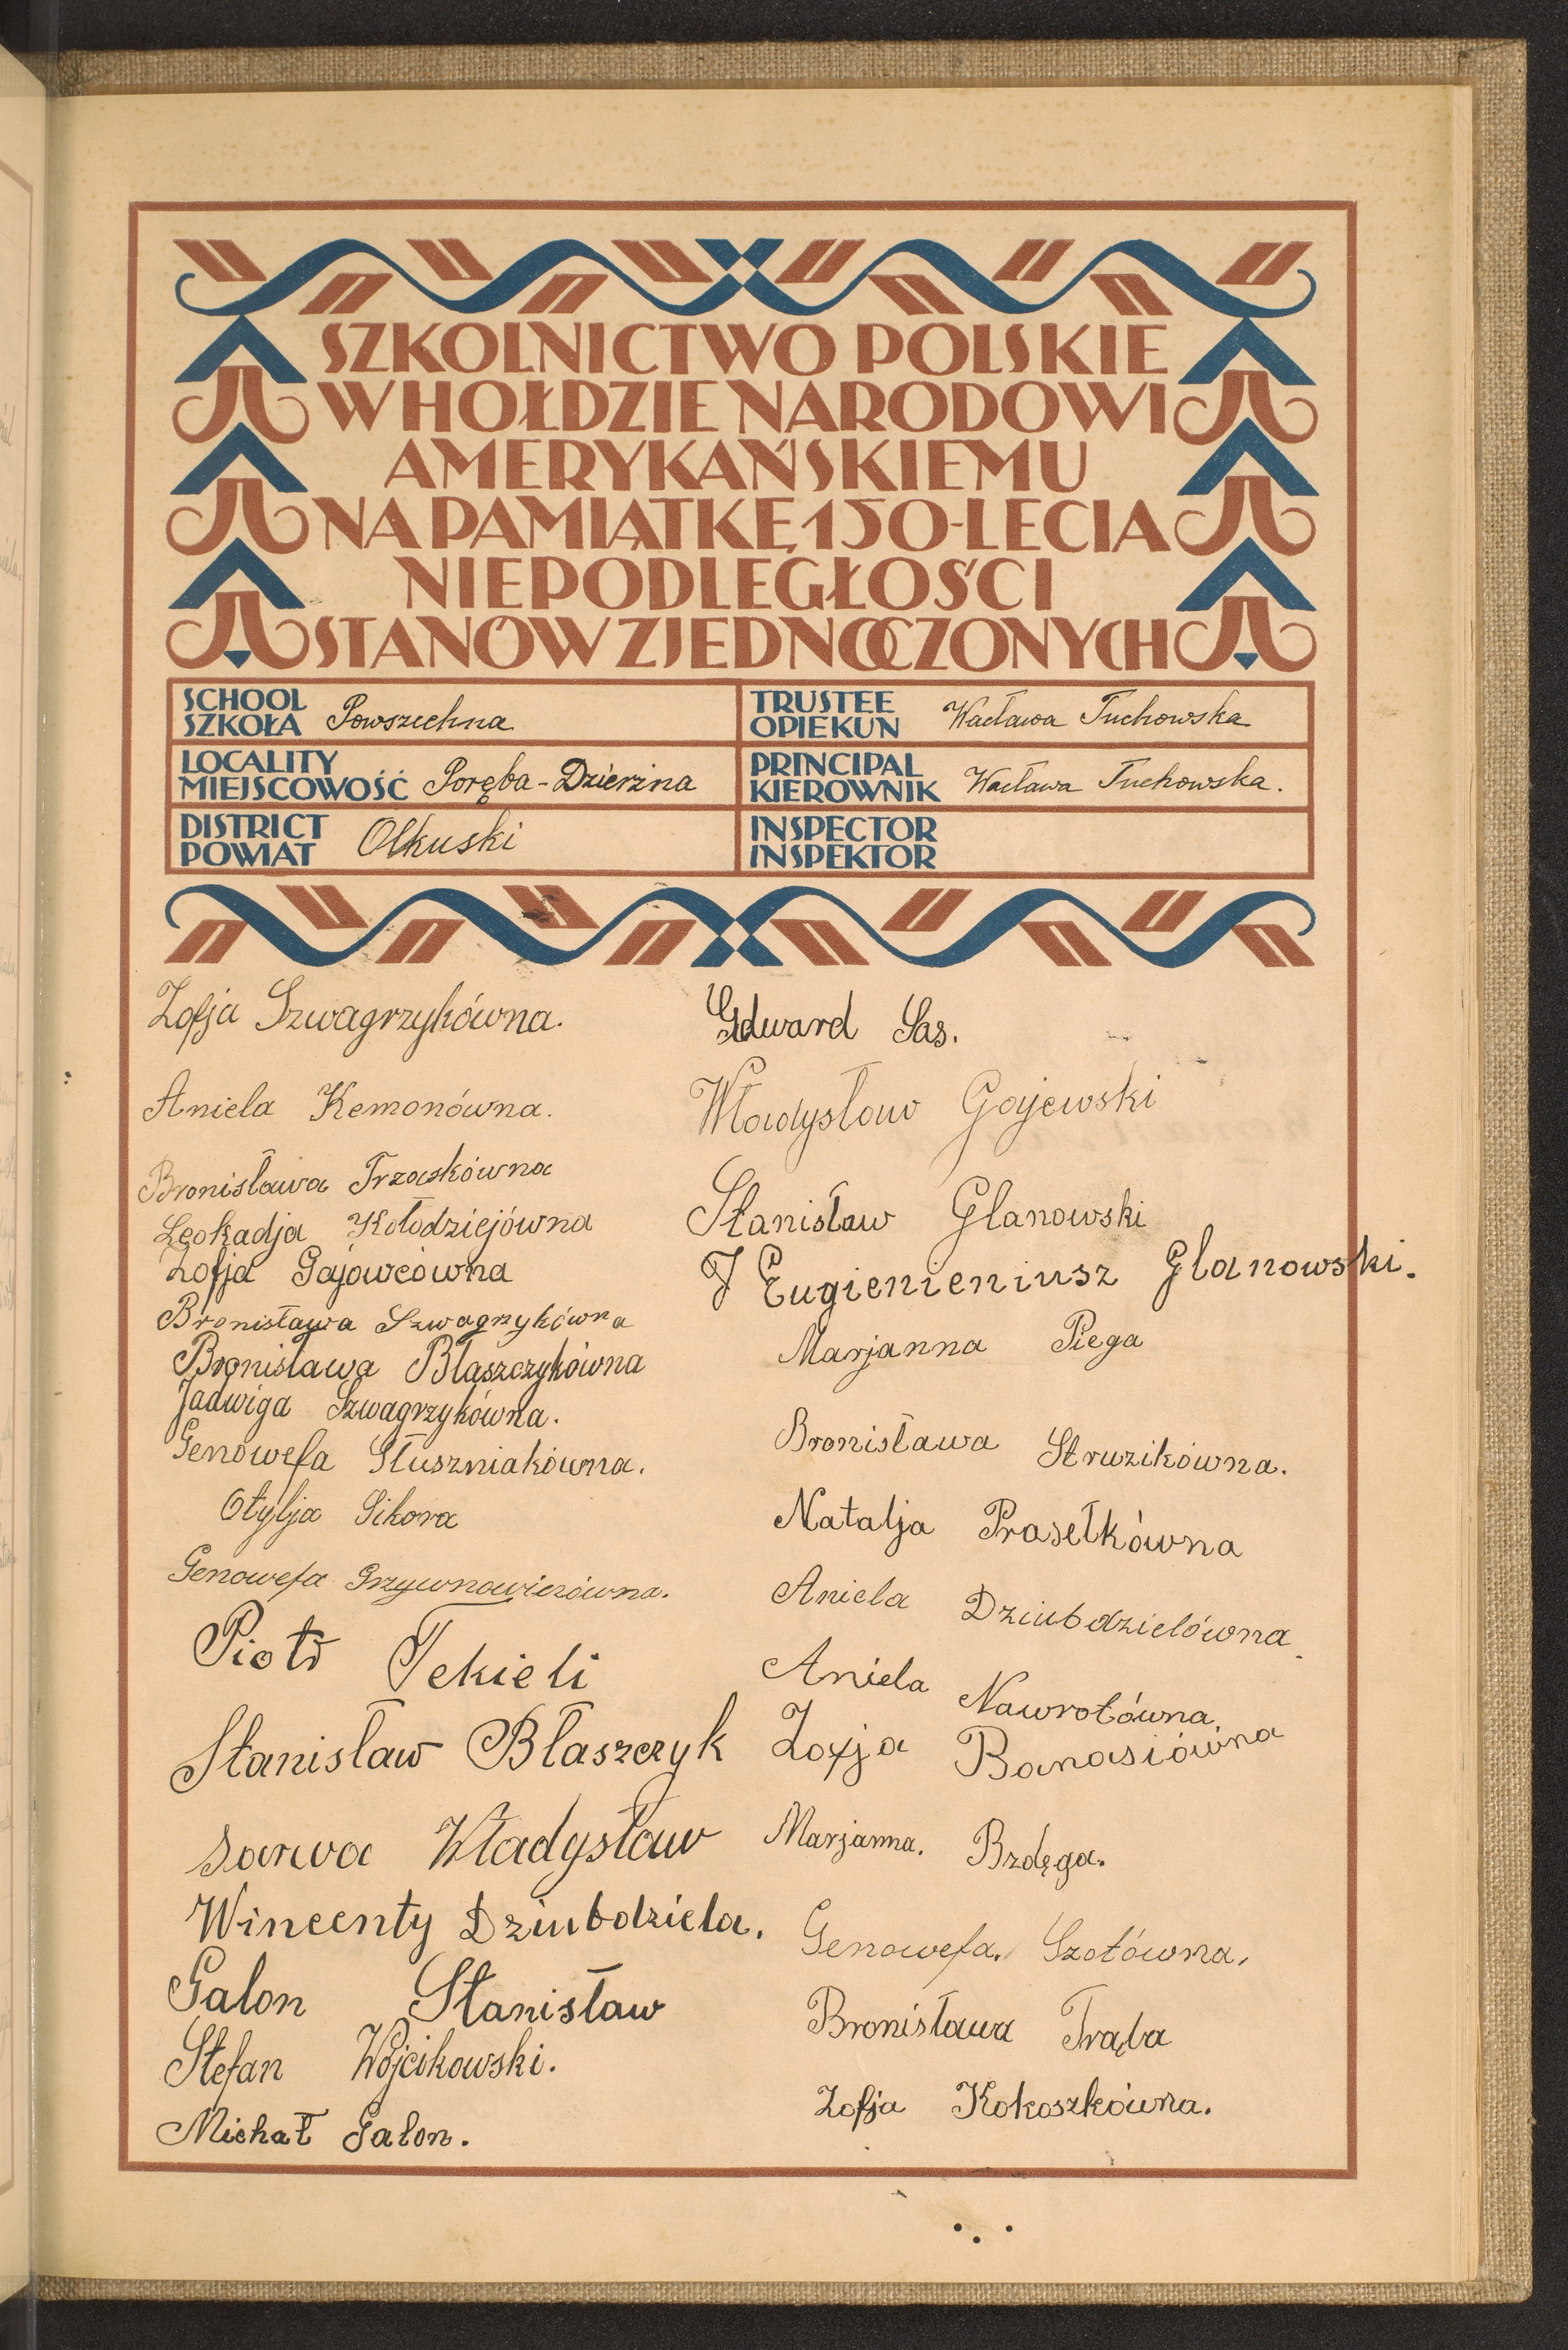 SZKOLNICTWO POLSKIE
W HOŁDZIE NARODOWI
AMERYKAŃSKIEMU
NA PAMIĄTKĘ 150-LECIA
NIEPODLEGŁOŚCI
STANÓW ZJEDNOCZONYCH
SCHOOL
SZKOŁA Powszechna
TRUSTEE
OPIEKUN Wacława Tuchowska
LOCALITY
MIEJSCOWOŚĆ Poręba-Dzierżna
PRINCIPAL
KIEROWNIK Wacława Tuchowska.
DISTRICT
POWIAT Olkuski
INSPECTOR
INSPEKTOR
Zofja Szwagrzykówna.
Aniela Kemonówna.
Bronisława Trzaskówna
Leokadja Kołodziejówna
Zofja Gajówcówna
Bronisława Szwagrzykówna
Bronisława Błaszczykówna
Jadwiga Szwagrzykówna.
Genowefa Słuszniakówna.
Otylja Sikora
Genowefa Grzywnowiczówna.
Piotr Tekieli
Stanisław Błaszczyk
Sarwa Władysław
Wincenty Dziubdziela.
Galon Stanisław
Stefan Wójcikowski.
Michał Galon.
Edward Sas.
Władysław Gajewski
Stanisław Glanowski
J Eugienieniusz Glanowski.
Marjanna Piega
Bronisława Struzikówna.
Natalja Prasełkówna
Aniela Dziubdzielówna
Aniela Nawrotówna
Zofja Banasiówna
Marjanna. Bzdęga.
Genowefa. Szotówna.
Bronisława Trąba
Zofja Kokoszkówna.